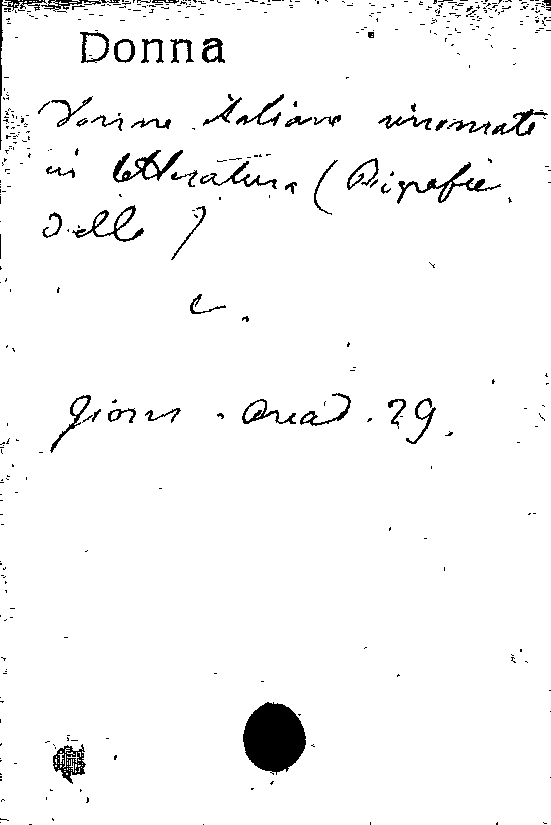 Donna
Donne Italiane rinomate
in letteratura (Biografie
delle)
c.
Giorn. Arcad. 29.